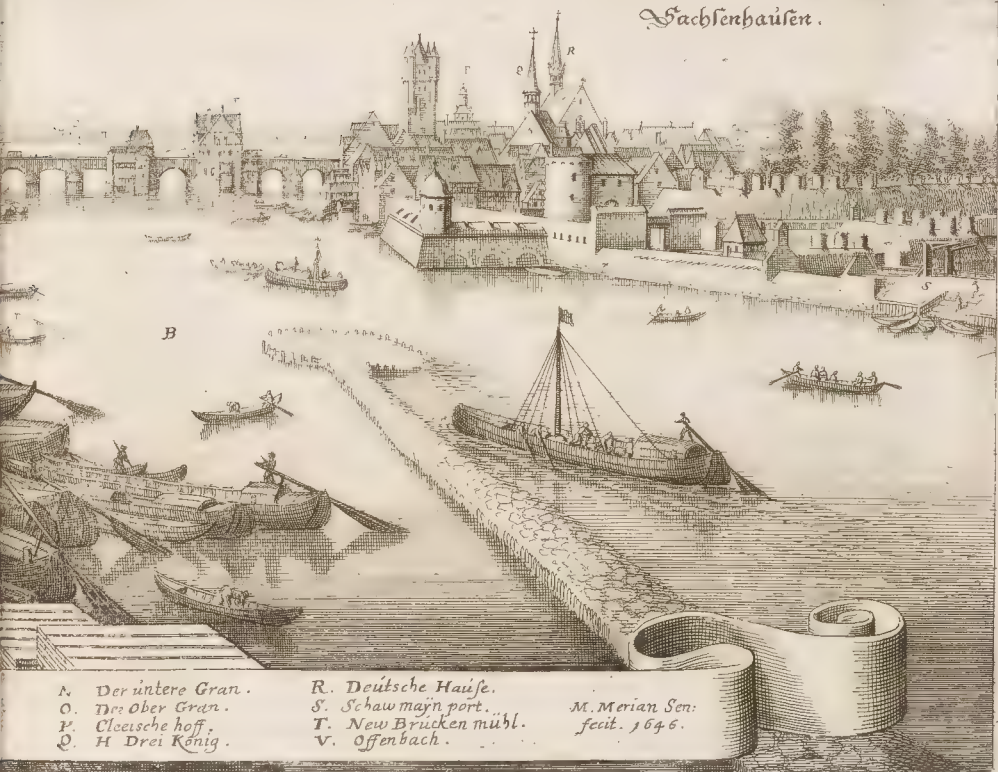 Sachſenhaúſen.
R
Q
B
S
N Der úntere Gran.
O. Der Ober Gran.
P. Cleetsche hoff.
Q. H Drei König.
R. Deútsche Haúſe.
S. Schaw maÿn port.
T. New Brúcken múhl.
V. Offenbach.
M. Merian Sen:
fecit. 1646.